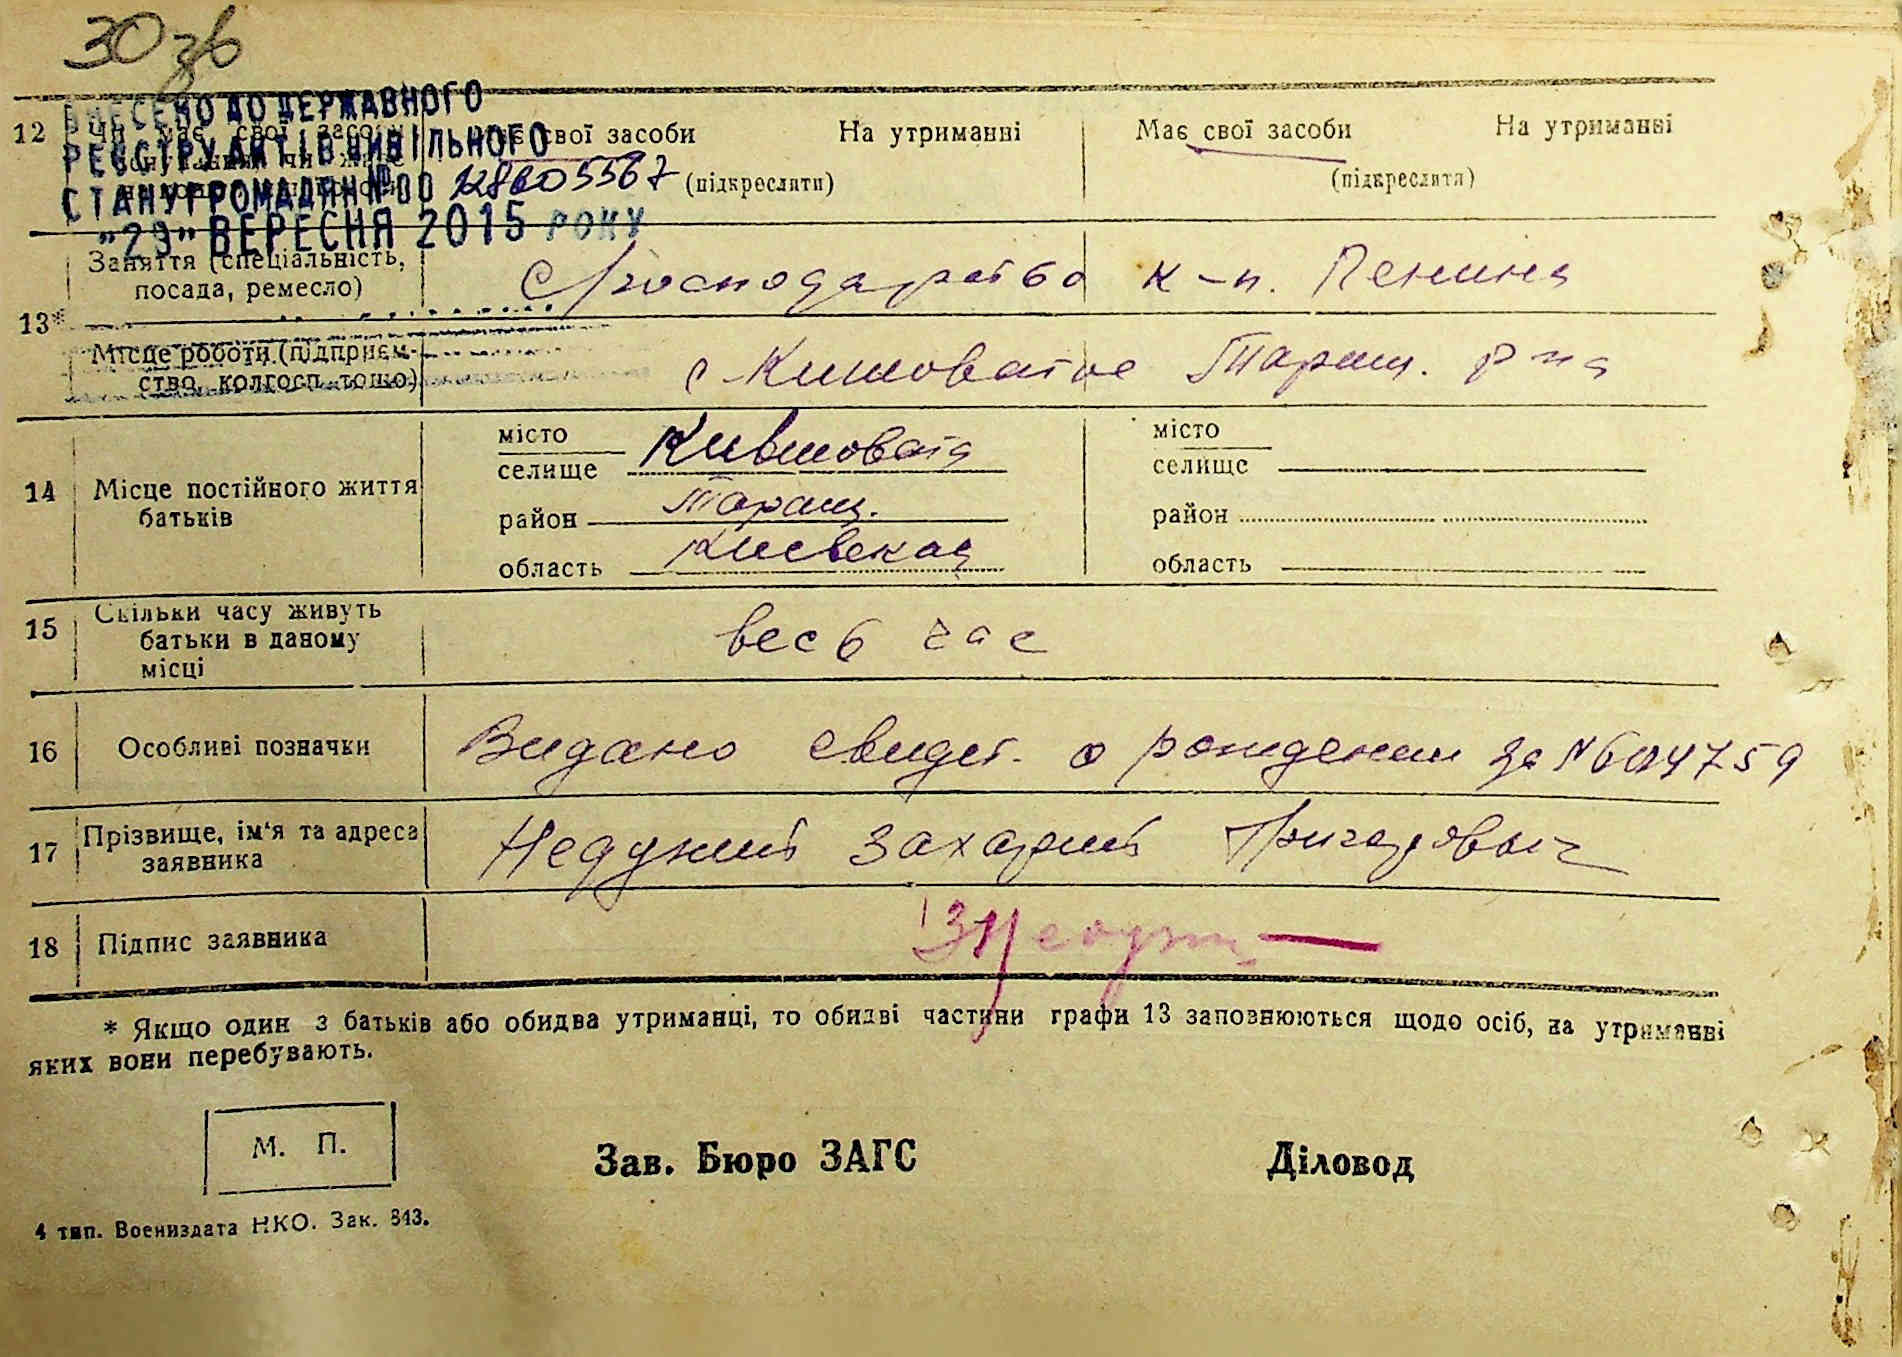 30 зв
ВНЕСЕНО ДО ДЕРЖАВНОГО
РЕЄСТРУ АКТІВ ЦИВІЛЬНОГО
СТАНУ ГРОМАДЯН № 00
"29" ВЕРЕСНЯ 2015 РОКУ
12 Чи має свої засоби
свої засоби На утриманні Має свої засоби На утриманні
(підкреслити) (підкреслити)
Заняття (спеціальність,
посада, ремесло)
С/господарство к-п. Ленина
13*
Місце роботи (підприєм-
ство, колгосп тощо)
с Кишоватое Таращ. р-на
14 Місце постійного життя
батьків
місто
селище Кившовата
район Таращ.
область Киевская
місто
селище
район
область
15 Скільки часу живуть
батьки в даному
місці
весь час
16 Особливі позначки Видано свидет. о рождении за №
17 Прізвище, ім'я та адреса
заявника
Недужий Захарий Григорович
18 Підпис заявника ЗНедуж
* Якщо один з батьків або обидва утриманці, то обидві частини графи 13 заповнюються щодо осіб, на утриманні
яких вони перебувають.
М. П.
Зав. Бюро ЗАГС Діловод
4 тип. Воениздата НКО. Зак. 843.